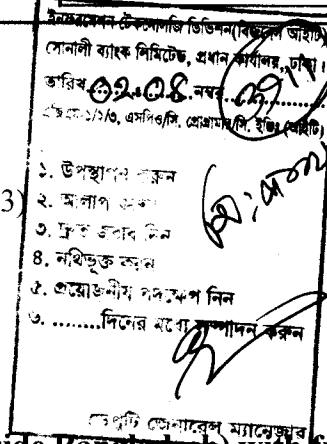 ইনফরমেশন টেকনোলজি ডিভিশন(বিজনেস আইটি)
সোনালী ব্যাংক লিমিটেড, প্রধান কার্যালয়, ঢাকা।
তারিখ ০২.০৪. নম্বর
এজিএম-১/২/৩, এসপিও/সি. প্রোগ্রামার/সি. ইঞ্জিঃ (আইটি)
১. উপস্থাপন করুন
3) ২. আলাপ করুন
৩. দ্রুত জবাব দিন
৪. নথিভূক্ত করুন
৫. প্রয়োজনীয় পদক্ষেপ নিন
৬. ........দিনের মধ্যে সম্পাদন করুন
ডেপুটি জেনারেল ম্যানেজার